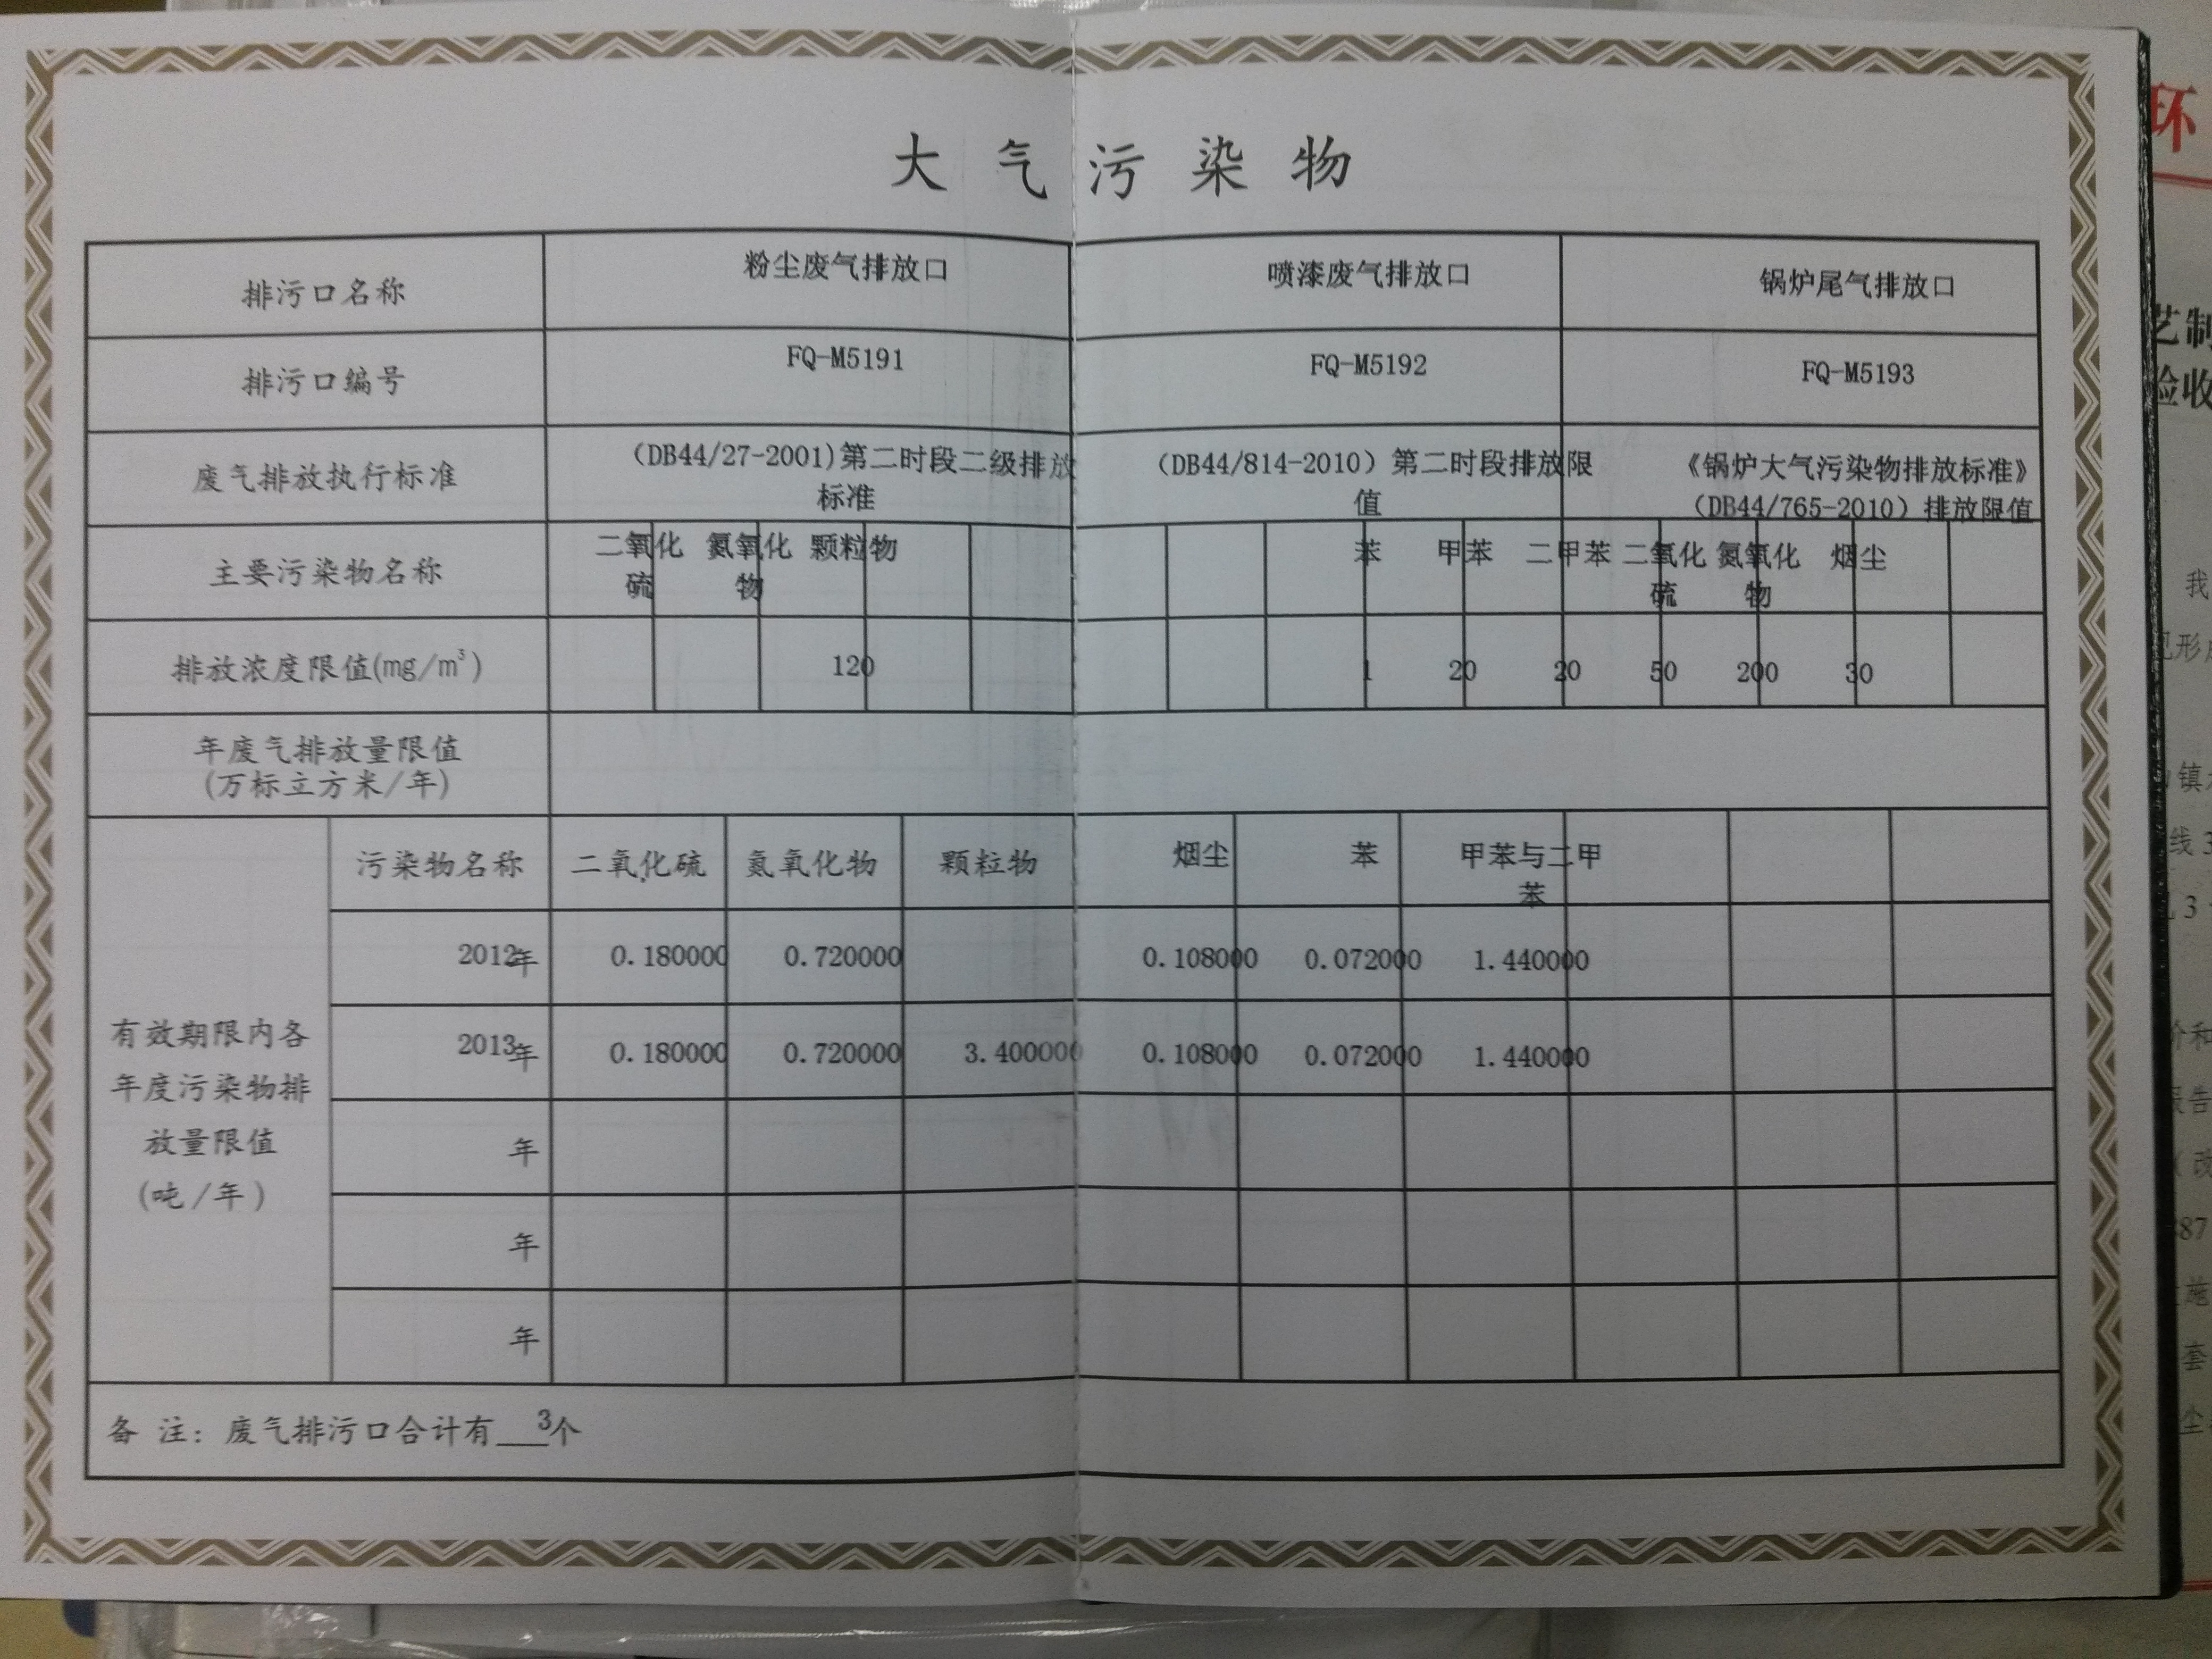 大气污染物
排污口名称 粉尘废气排放口 喷漆废气排放口 锅炉尾气排放口
排污口编号 FQ-M5191 FQ-M5192 FQ-M5193
废气排放执行标准 (DB44/27-2001)第二时段二级排放 (DB44/814-2010）第二时段排放限 《锅炉大气污染物排放标准》
标准 值 (DB44/765-2010）排放限值
主要污染物名称 二氧化 氮氧化 颗粒物 苯 甲苯 二甲苯 二氧化 氮氧化 烟尘
硫 物 硫 物
排放浓度限值(mg/m³) 120 1 20 20 50 200 30
年废气排放量限值
(万标立方米/年)
污染物名称 二氧化硫 氮氧化物 颗粒物 烟尘 苯 甲苯与二甲
苯
2012年 0.180000 0.720000 0.108000 0.072000 1.440000
有效期限内各
2013年 0.180000 0.720000 3.400000 0.108000 0.072000 1.440000
年度污染物排
放量限值
年
(吨/年)
年
年
备 注：废气排污口合计有 3个
环
艺制
验收
我
镇
线3
3
价和
报告
(改
387
施
套
尘